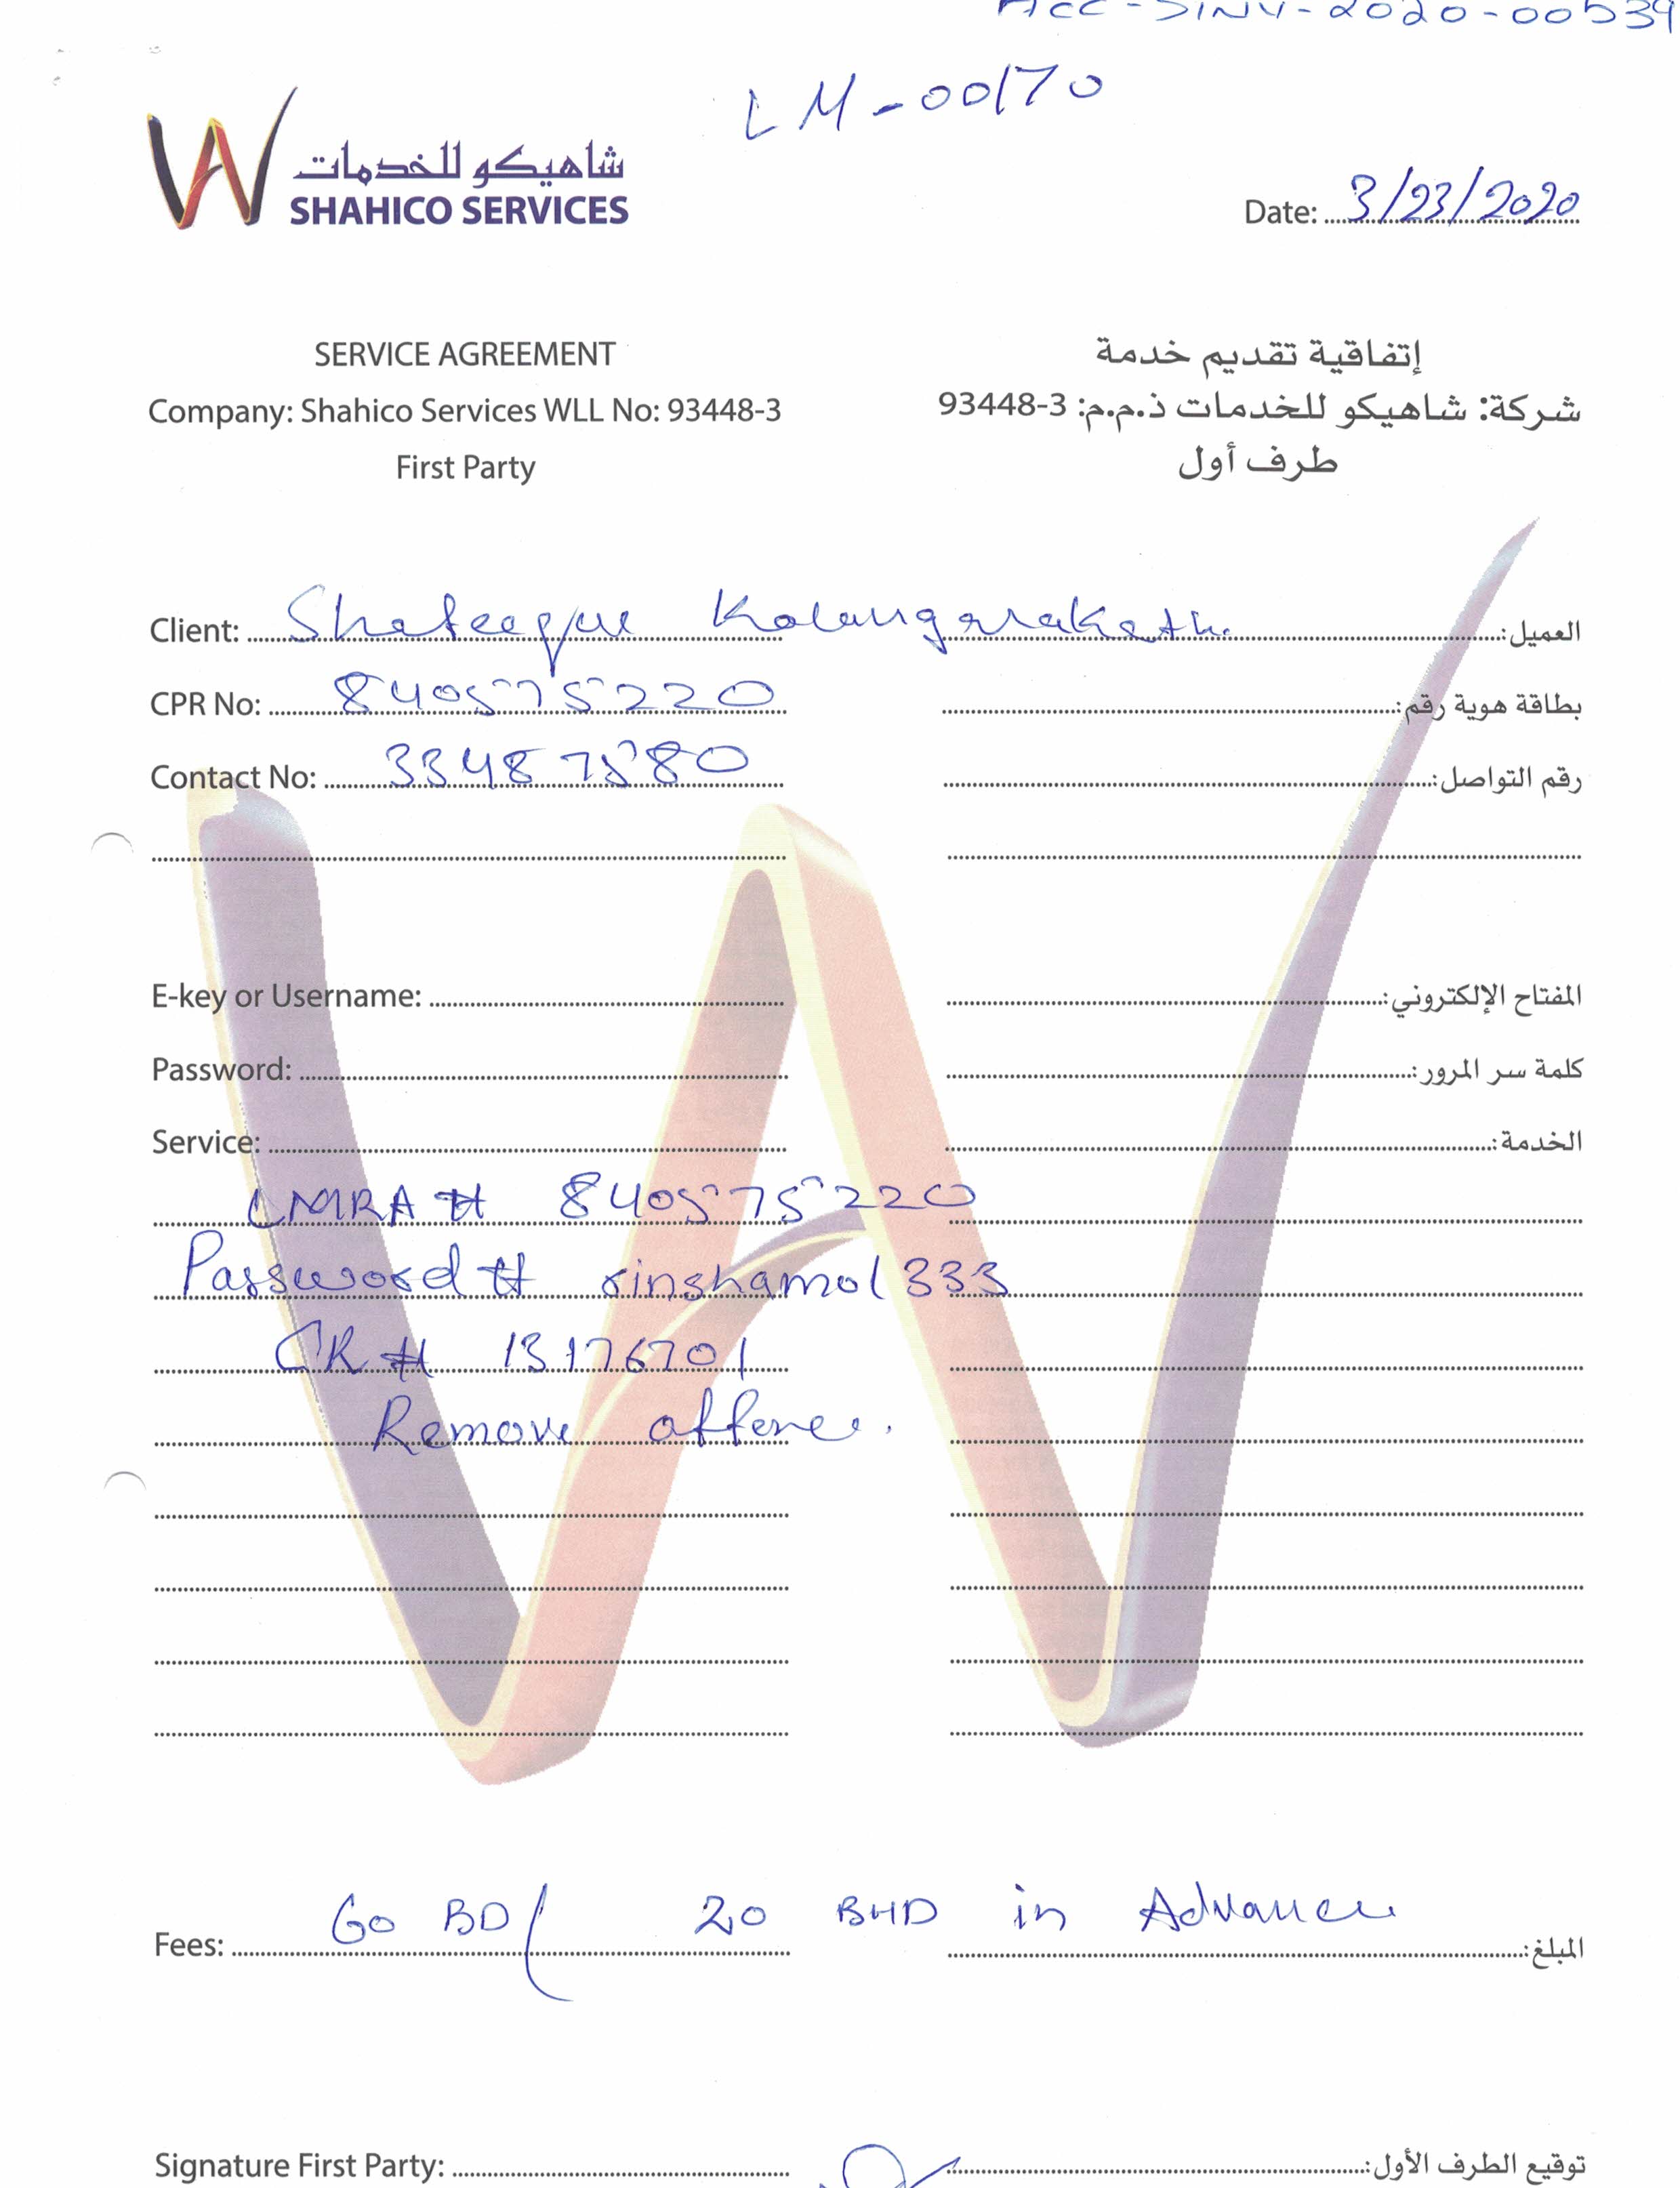 ACC-SINV-2020-00539
LM-00170
شاهيكو للخدمات
SHAHICO SERVICES
Date: 3/23/2020
SERVICE AGREEMENT
إتفاقية تقديم خدمة
Company: Shahico Services WLL No: 93448-3
شركة: شاهيكو للخدمات ذ.م.م: 93448-3
First Party
طرف أول
Client: Shafeeque Kolangarakath العميل:
CPR No: 840575220 بطاقة هوية رقم:
Contact No: 33487580 رقم التواصل:
E-key or Username: المفتاح الإلكتروني:
Password: كلمة سر المرور:
Service: الخدمة:
LMRA # 840575220
Password # rinshamol333
CR # 13176701
Remove offence.
Fees: 60 BD/ 20 BHD in Advance المبلغ:
Signature First Party: توقيع الطرف الأول: